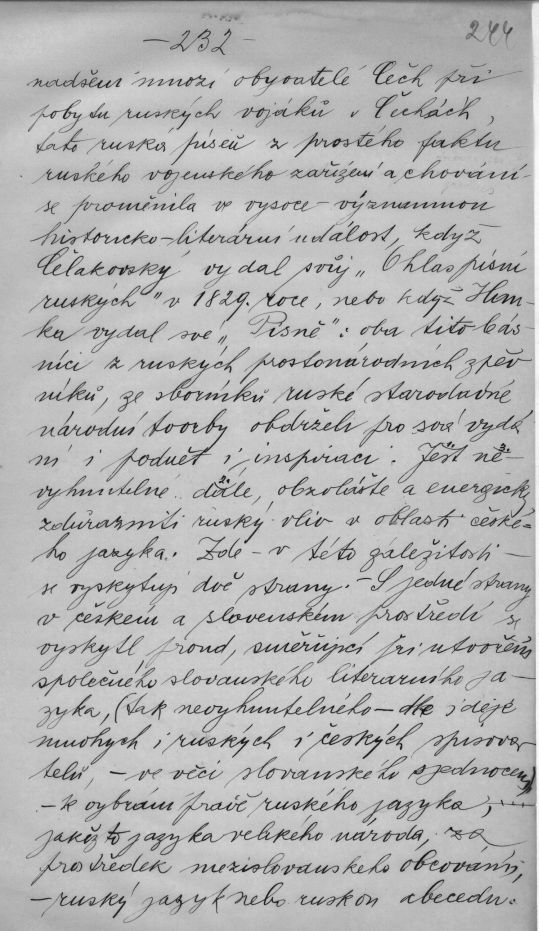 — 232 —
244
nadšení mnozí obyvatelé Čech při
pobytu ruských vojáků v Čechách,
tato ruska píseň z prostého faktu
ruského vojenského zařízení a chování
se proměnila ve vysoce – významnou
historicko – literární událost, když
Čelakovský vydal svůj „Ohlas písní
ruských" v 1829. roce, nebo když Han-
ka vydal své „Písně": oba tito bás-
níci z ruských prostonárodních zpěv
níků, ze sborníků ruské starodavné
národní tvorby obdrželi pro svá vydá
ní i podnět i inspiraci. Jest ne-
vyhnutelné dále, obzvláště a energicky
zdůrazniti ruský vliv v oblasti české-
ho jazyka. Zde – v této záležitosti –
se vyskytují dvě strany. – S jedné strany
v českém a slovenském prostředí se
vyskytl proud, směřující při utvoření
společného slovanského literarního ja-
zyka, (tak nevyhnutelného – dle idějě
mnohych i ruskych i českých spisova-
telů, – ve věci slovanského sjednocení)
– k vybrání právě ruského jazyka, ....
jakožto jazyka velikého národa, za
prostředek mezislovanskeho obcování,
– ruský jazyk nebo ruskou abecedu.